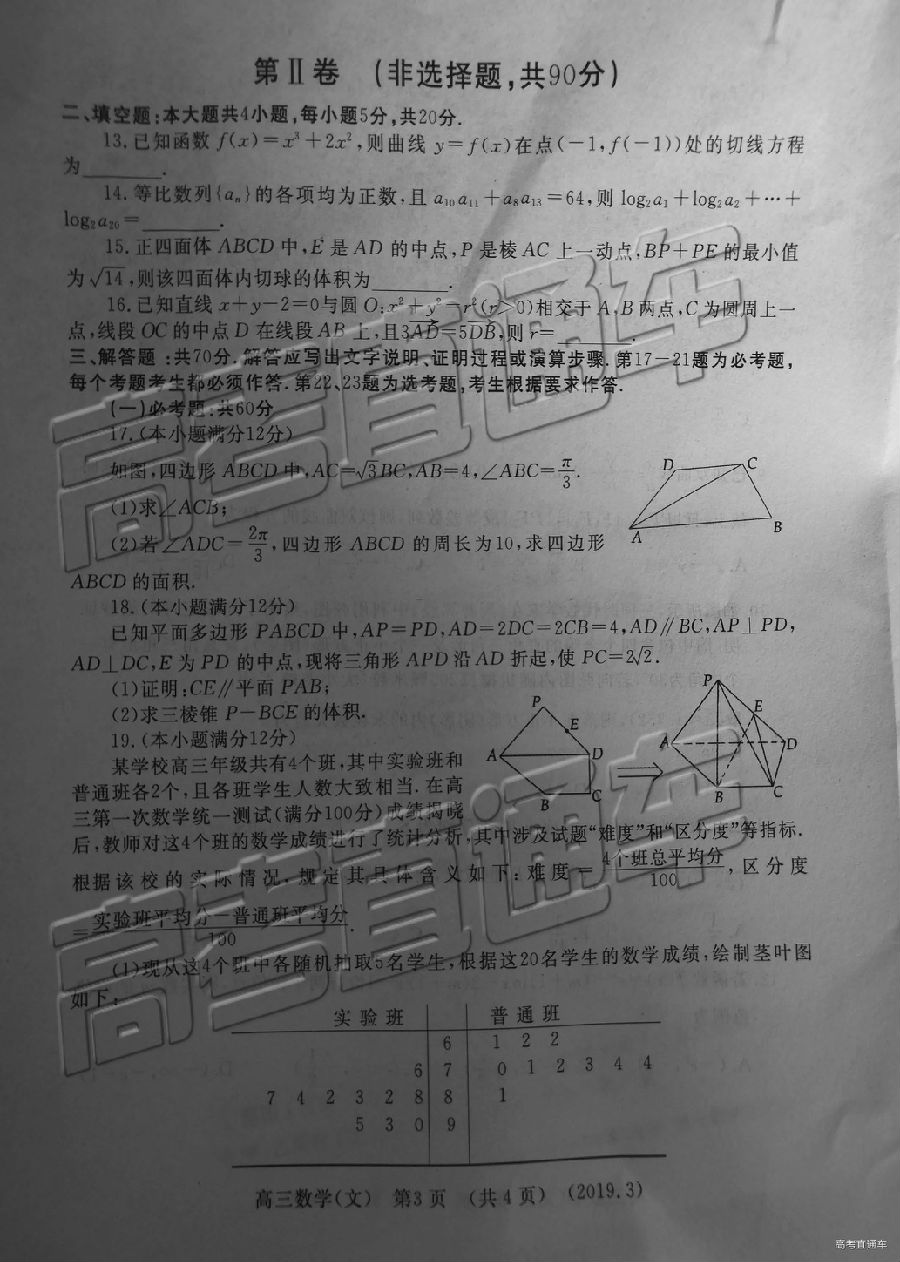 第Ⅱ卷 (非选择题,共90分)
二、填空题:本大题共4小题,每小题5分,共20分.
13.已知函数 f(x)=x³+2x²,则曲线 y=f(x)在点(-1,f(-1))处的切线方程
为________.
14.等比数列{aₙ}的各项均为正数,且 a₁₀a₁₁+a₈a₁₃=64,则 log₂a₁+log₂a₂+…+
log₂a₂₀=________.
15.正四面体 ABCD 中,E 是 AD 的中点,P 是棱 AC 上一动点,BP+PE 的最小值
为√14,则该四面体内切球的体积为________.
16.已知直线 x+y-2=0与圆 O:x²+y²=r²(r>0)相交于 A,B 两点,C 为圆周上一
点,线段 OC 的中点 D 在线段 AB 上,且3AD=5DB,则 r=________.
三、解答题:共70分.解答应写出文字说明、证明过程或演算步骤.第17-21题为必考题,
每个考题考生都必须作答.第22、23题为选考题,考生根据要求作答.
(一)必考题:共60分
17.(本小题满分12分)
如图,四边形 ABCD 中,AC=√3BC,AB=4,∠ABC=π/3.
(1)求∠ACB;
(2)若∠ADC=2π/3,四边形 ABCD 的周长为10,求四边形
ABCD 的面积.
D C
A B
18.(本小题满分12分)
已知平面多边形 PABCD 中,AP=PD,AD=2DC=2CB=4,AD∥BC,AP⊥PD,
AD⊥DC,E 为 PD 的中点,现将三角形 APD 沿 AD 折起,使 PC=2√2.
(1)证明:CE∥平面 PAB;
(2)求三棱锥 P-BCE 的体积.
P E A D B C
P E A D B C
19.(本小题满分12分)
某学校高三年级共有4个班,其中实验班和
普通班各2个,且各班学生人数大致相当.在高
三第一次数学统一测试(满分100分)成绩揭晓
后,教师对这4个班的数学成绩进行了统计分析,其中涉及试题“难度”和“区分度”等指标.
根据该校的实际情况,规定其具体含义如下:难度=4个班总平均分/100,区分度
=实验班平均分-普通班平均分/100.
(1)现从这4个班中各随机抽取5名学生,根据这20名学生的数学成绩,绘制茎叶图
如下:
实验班 普通班
6 1 2 2
6 7 0 1 2 3 4 4
7 4 2 3 2 8 8 1
5 3 0 9
高三数学(文) 第3页 (共4页) (2019.3)
高考直通车
高考直通车
高考直通车